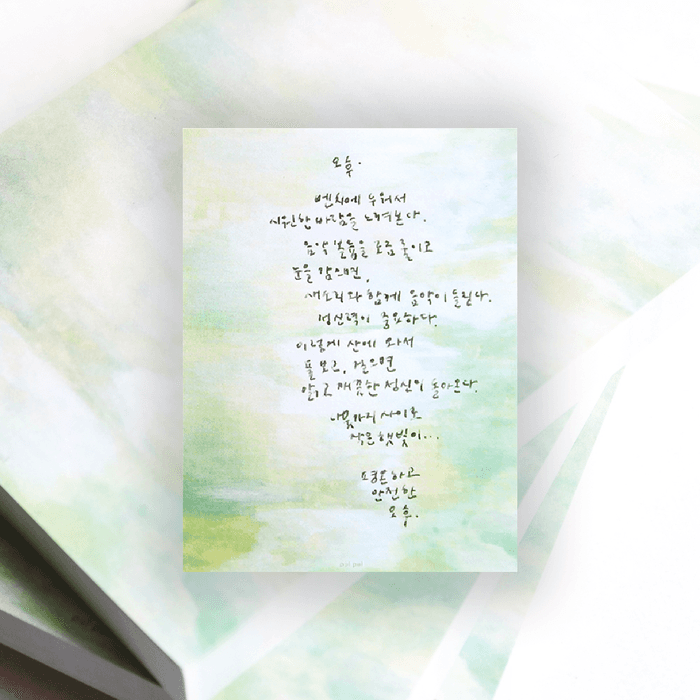 오후.
벤치에 누워서
시원한 바람을 느껴본다.
음악 볼륨을 조금 줄이고
눈을 감으면,
새소리와 함께 음악이 들린다.
정신력이 중요하다.
이렇게 산에 와서
풀 보고, 걸으면
맑고 깨끗한 정신이 돌아온다.
나뭇가지 사이로
작은 햇빛이...
평온하고
안전한
오후.